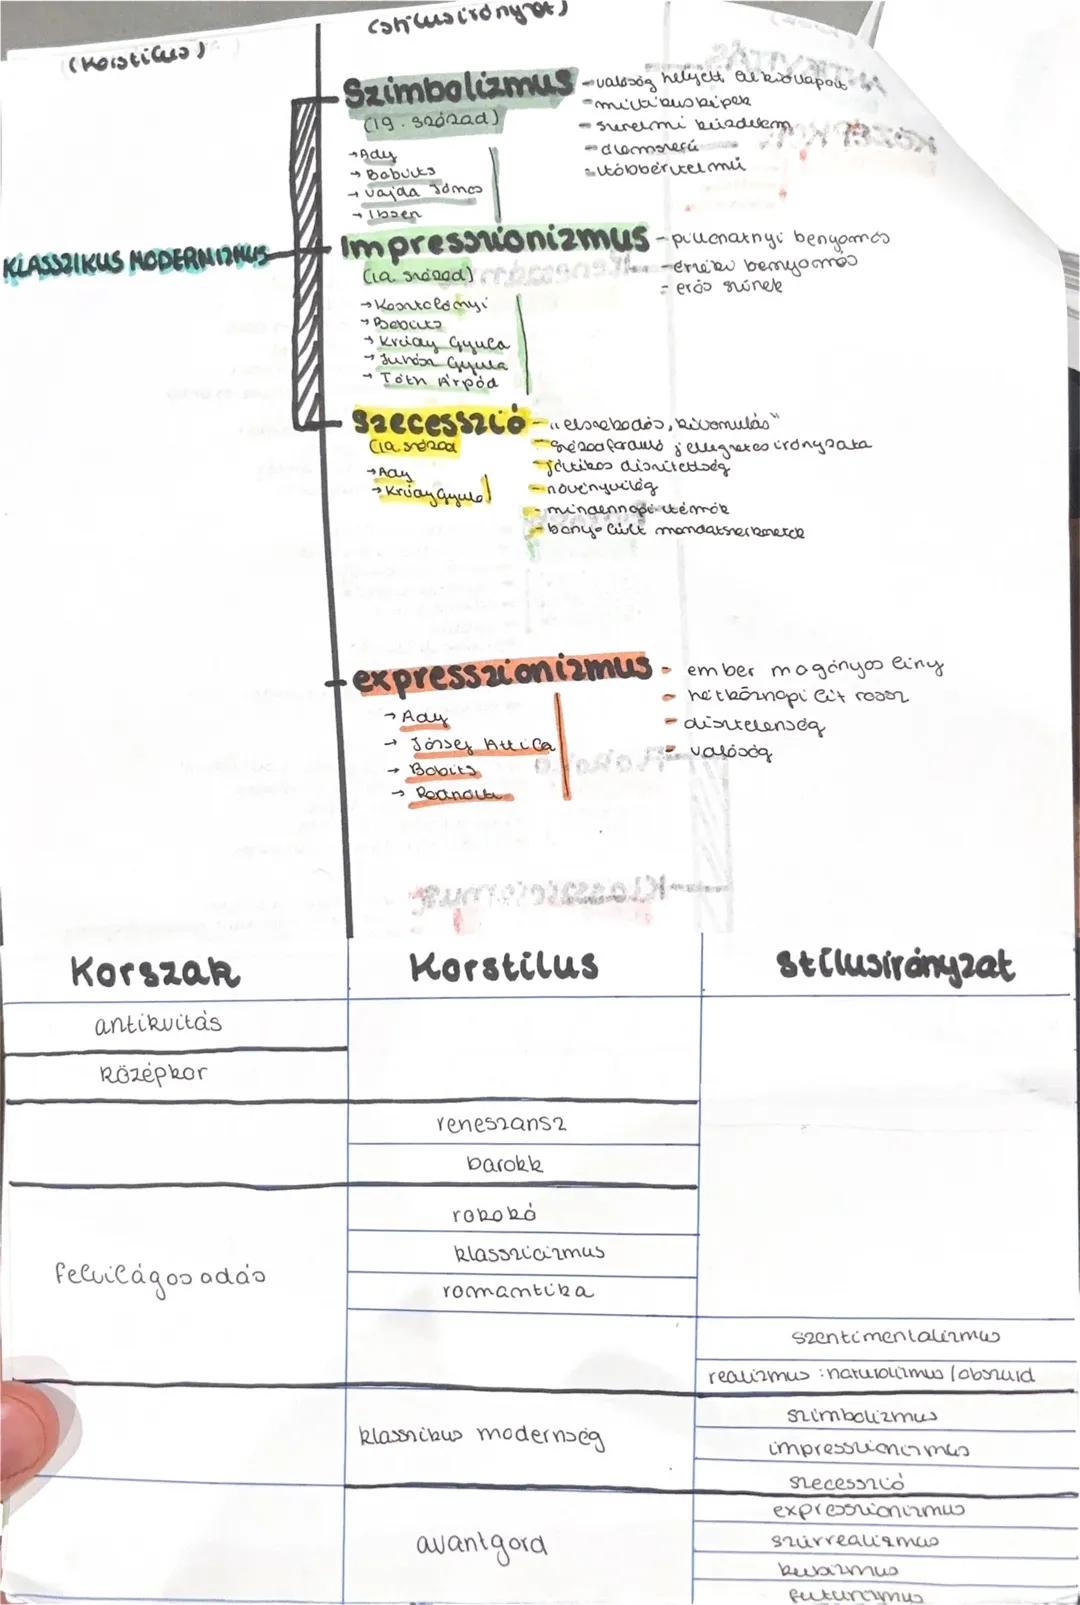 (korstílus)
(stílusirányzat)
Szimbolizmus
(19. század)
-valóság helyett
-mitikus képek
-szerelmi küzdelem
-álomszerű
-többértelmű
→Ady
→Babits
→Vajda János
→Ibsen
KLASSZIKUS MODERNIZMUS
Impresszionizmus
(19. század)
-pillanatnyi benyomás
-érzéki benyomás
-erős színek
→Kosztolányi
→Babits
→Krúdy Gyula
→Juhász Gyula
→Tóth Árpád
Szecesszió
(19. század
-"elszakadás, kivonulás"
-századforduló jellegzetes irányzata
-játékos díszítettség
-növényvilág
-mindennapi témák
-bonyolult mondatszerkezetek
→Ady
→Krúdy Gyula
expresszionizmus
- ember magányos lény
- hétköznapi lét rossz
- dísztelenség
- valóság
→ Ady
→ József Attila
→ Babits
→ Radnóti
Korszak
Korstílus
Stílusirányzat
antikvitás
középkor
reneszánsz
barokk
rokokó
klasszicizmus
romantika
felvilágosodás
szentimentalizmus
realizmus :naturalizmus/abszurd
klasszikus modernség
szimbolizmus
impresszionizmus
szecesszió
avantgárd
expresszionizmus
szürrealizmus
kubizmus
futurizmus